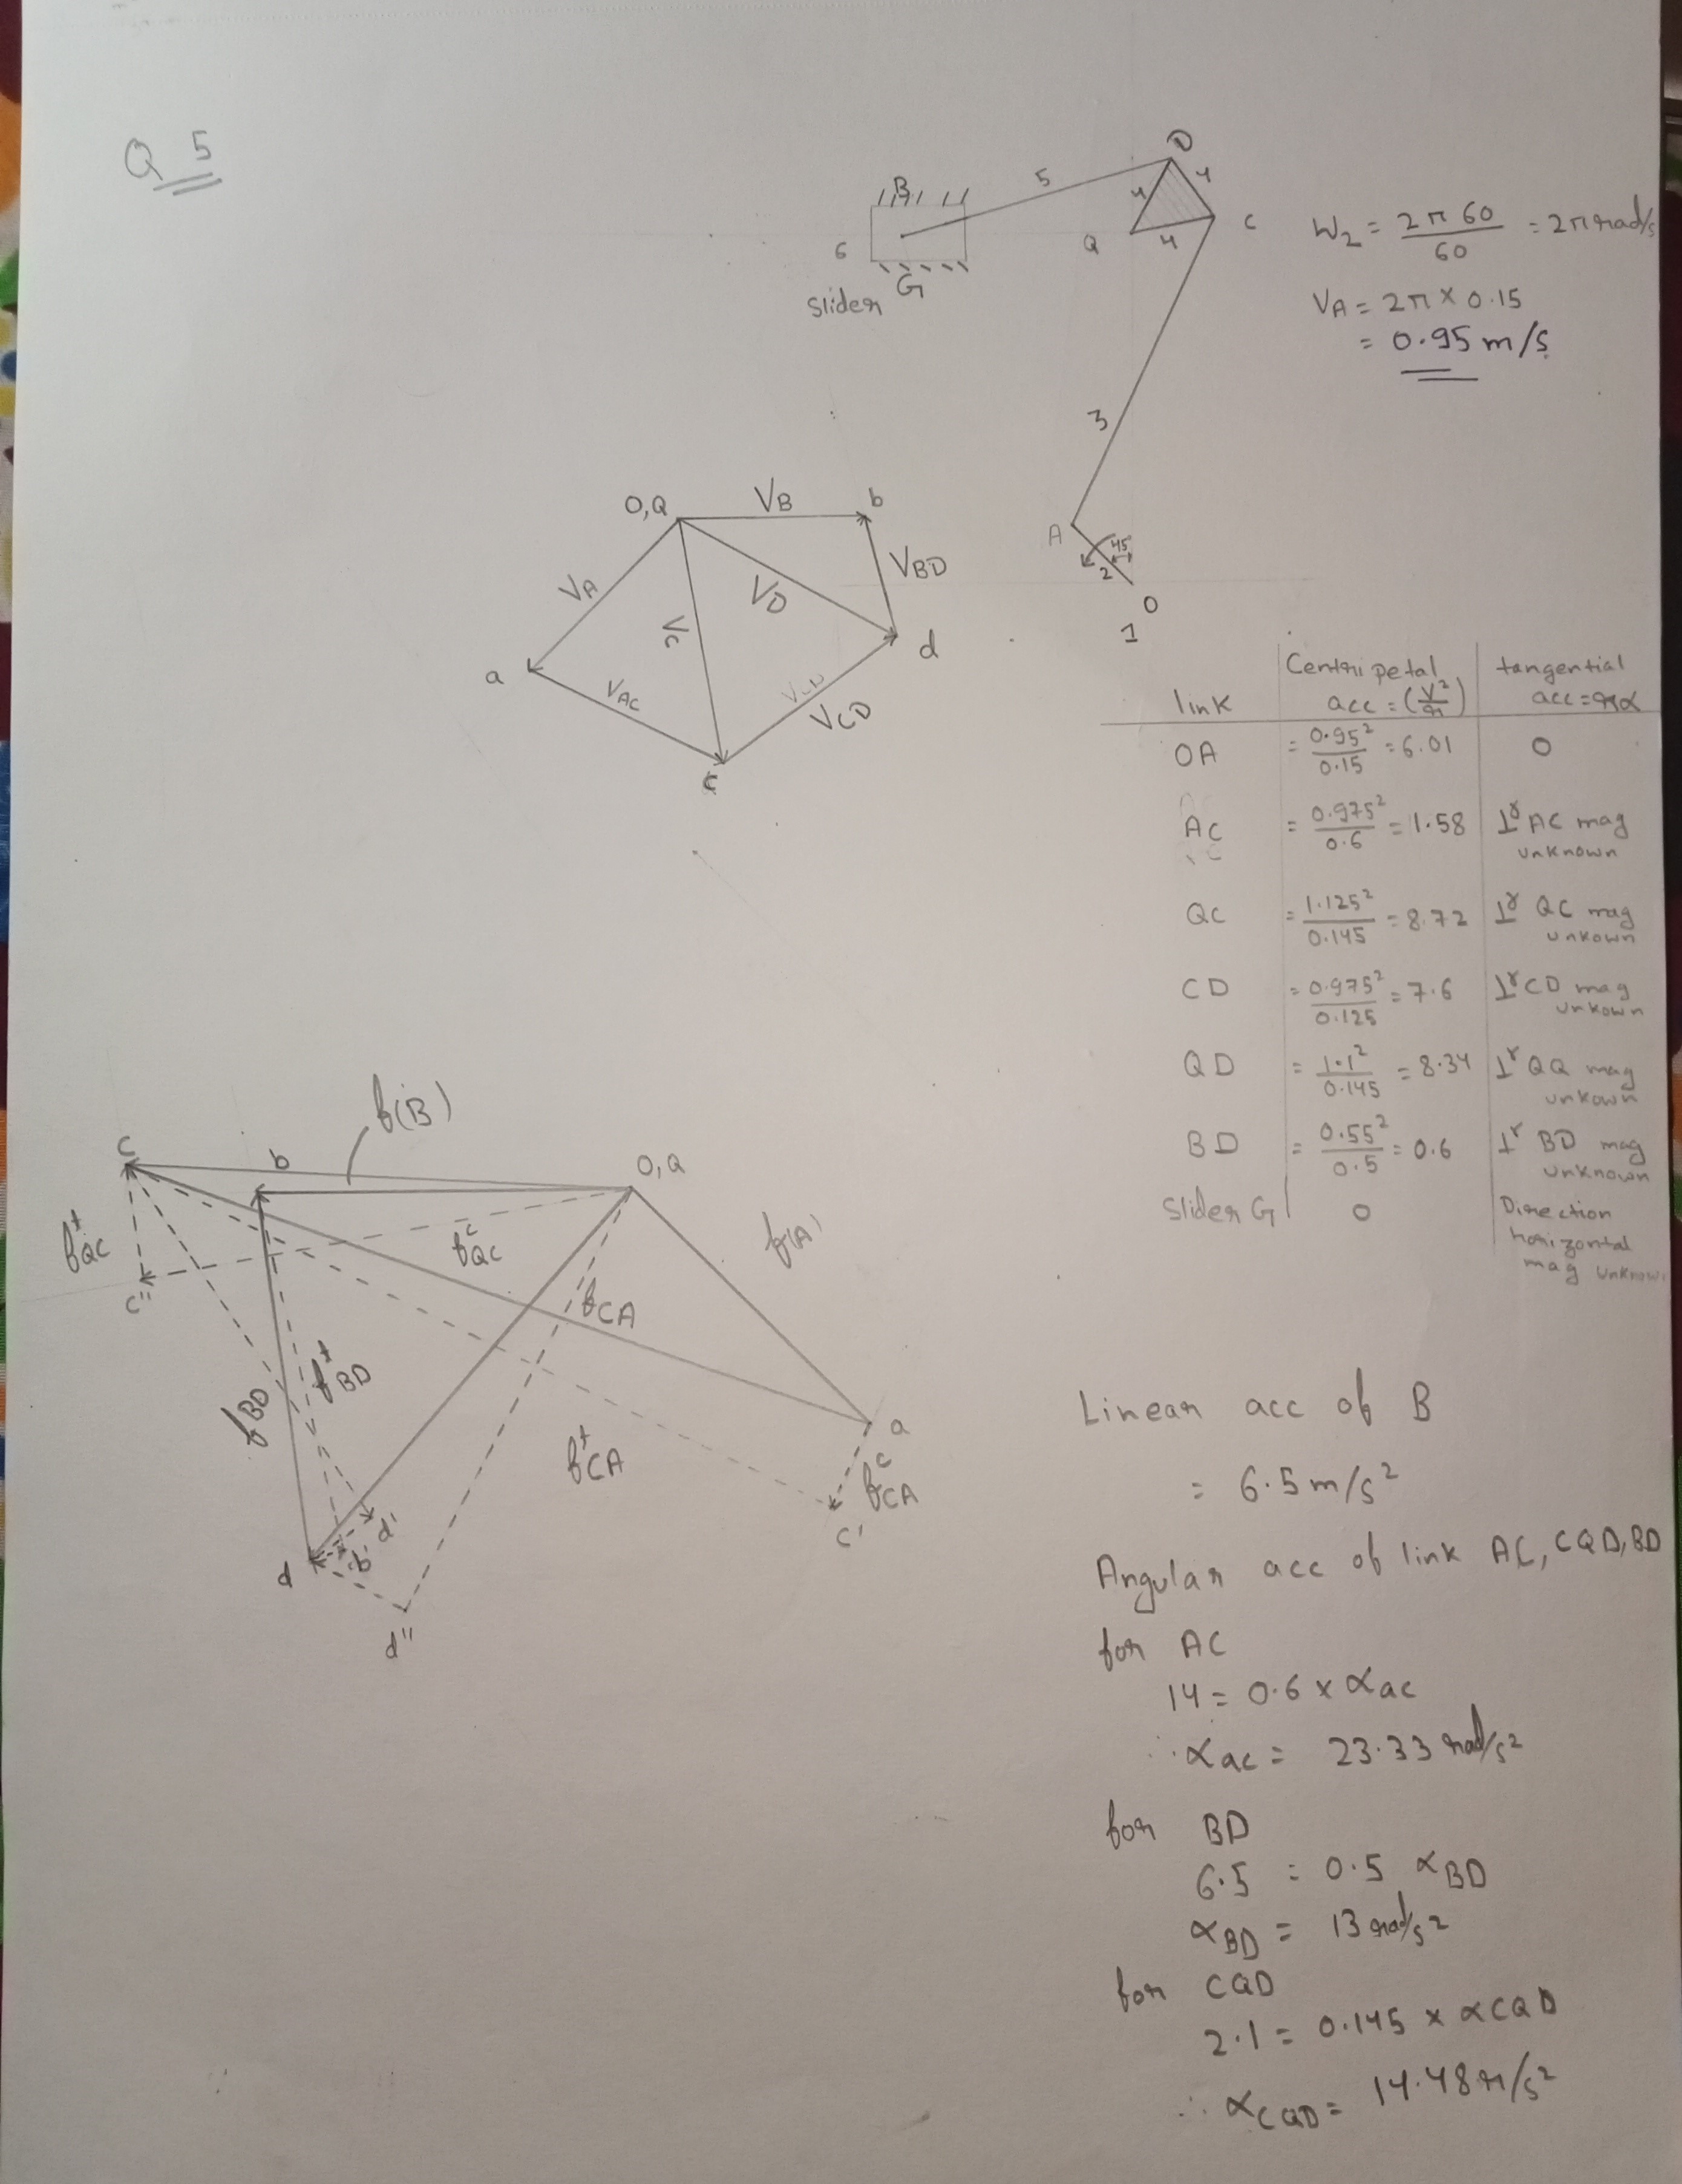 Q 5
D
5
4
4
B
C
6
Q
4
G
slider
W₂ = 2π 60 / 60 = 2π rad/s
VA = 2π × 0.15
= 0.95 m/s
3
A
45
2
O
1
O,Q
VB
b
VA
VD
VBD
VC
d
a
VAC
VCD
VCD
c
link | Centripetal acc = (V²/r) | tangential acc = rα
OA | = 0.95² / 0.15 = 6.01 | 0
AC | = 0.975² / 0.6 = 1.58 | ⊥r AC mag unknown
QC | = 1.125² / 0.145 = 8.72 | ⊥r QC mag unkown
CD | = 0.975² / 0.125 = 7.6 | ⊥r CD mag unkown
QD | = 1.1² / 0.145 = 8.34 | ⊥r QQ mag unkown
BD | = 0.55² / 0.5 = 0.6 | ⊥r BD mag unknown
Slider G | 0 | Direction horizontal mag unknown
f(B)
c
b
O,Q
f^t QC
f^c QC
f(A)
c"
fCA
fBD
f^t BD
a
f^t CA
f^c CA
c'
d'
b'
d
d"
Linear acc of B
= 6.5 m/s²
Angular acc of link AC, CQD, BD
for AC
14 = 0.6 × αac
∴ αac = 23.33 rad/s²
for BD
6.5 = 0.5 αBD
αBD = 13 rad/s²
for CQD
2.1 = 0.145 × αCQD
∴ αCQD = 14.48 r/s²